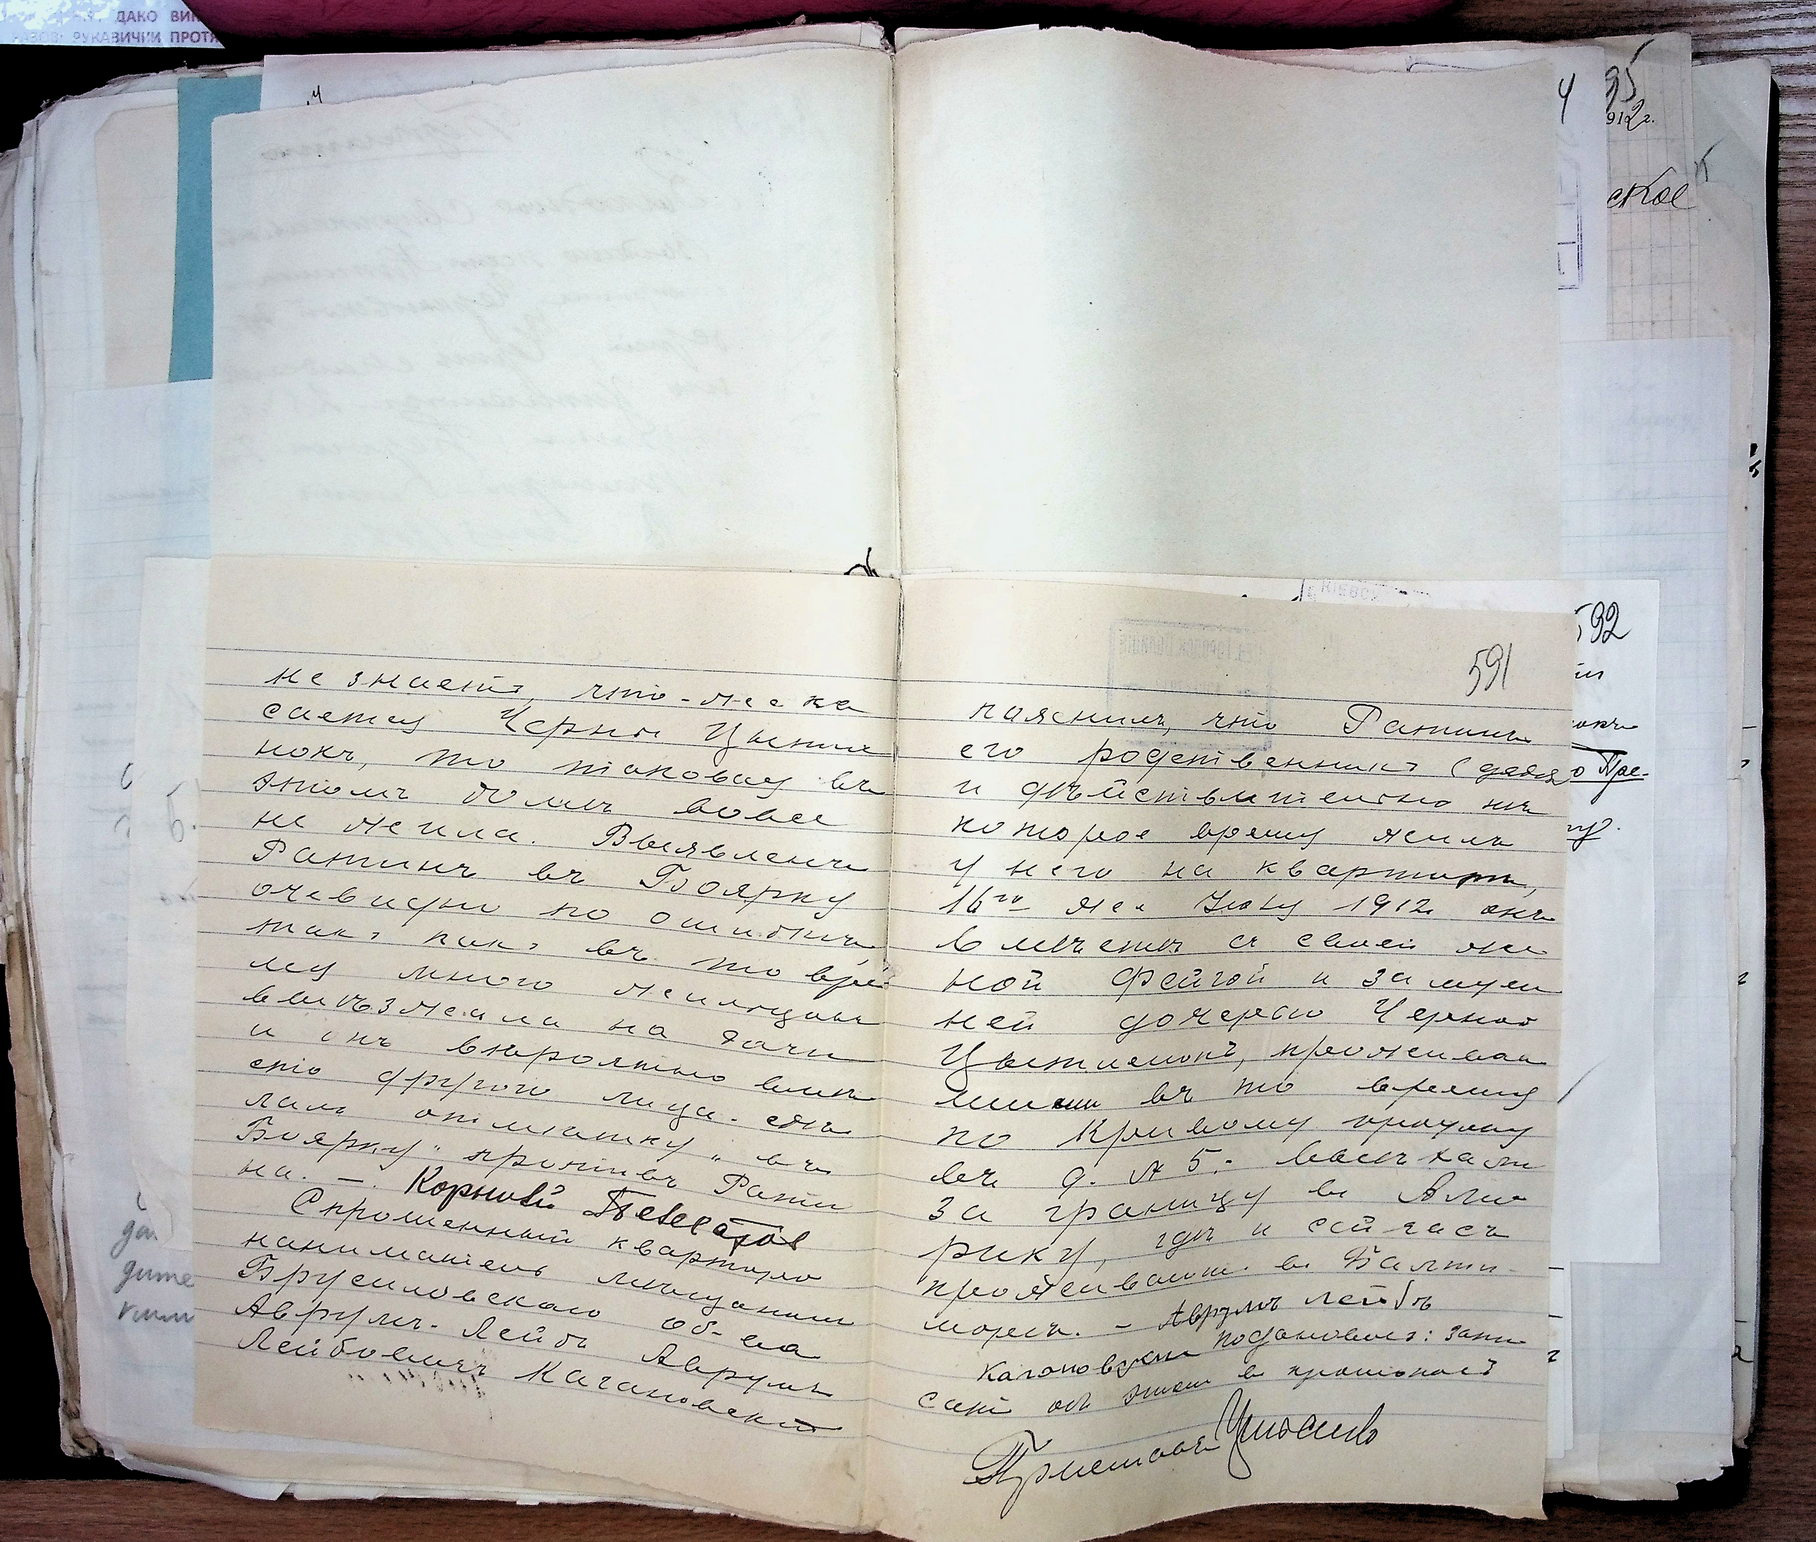 ДАКО
РУКАВИЧКИ ПРОТЯ
95
912 г.
ское
592
591
не знаетъ, что-же ка
сается Черны Цытле
нокъ, то таковая въ
этомъ домѣ вовсе
не жила. Выявленъ
Ратинъ въ Боярку
очевидно по ошибкѣ
такъ какъ въ то вре-
мя много жильцовъ
выѣзжала на дачи
и онъ вѣроятно вмѣ
сто другого лица сдѣ
лалъ отмѣтку „въ
Боярку" противъ Рати
на. – Корней
Спрошенный квартиро
наниматель мѣщанинъ
Брусиловскаго об-ва
Аврумъ-Лейбъ Аврумъ
Лейбовичъ Кагановскій
пояснилъ, что Ратинъ
его родственникъ (дядя)
и дѣйствительно нѣ
которое время жилъ
у него на квартирѣ,
16го же Іюля 1912 онъ
вмѣстѣ съ своей же
ной Фейгой и замуж
ней дочерью Черной
Цытленокъ, проживав
шими въ то время
по Кривому
въ д. № 5. – выѣхали
за границу въ Аме
рику, гдѣ и сейчасъ
проживаютъ въ Балти-
морѣ. – Аврумъ Лейбъ
Кагановскій Постановилъ: запи
сать объ этомъ въ протоколъ
Приставъ